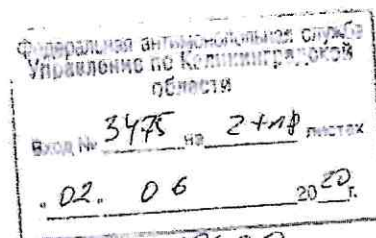 Федеральная антимонопольная служба
Управление по Калининградской
области
Вход № 3475 на 2+пр листах
"02" 06 2020 г.